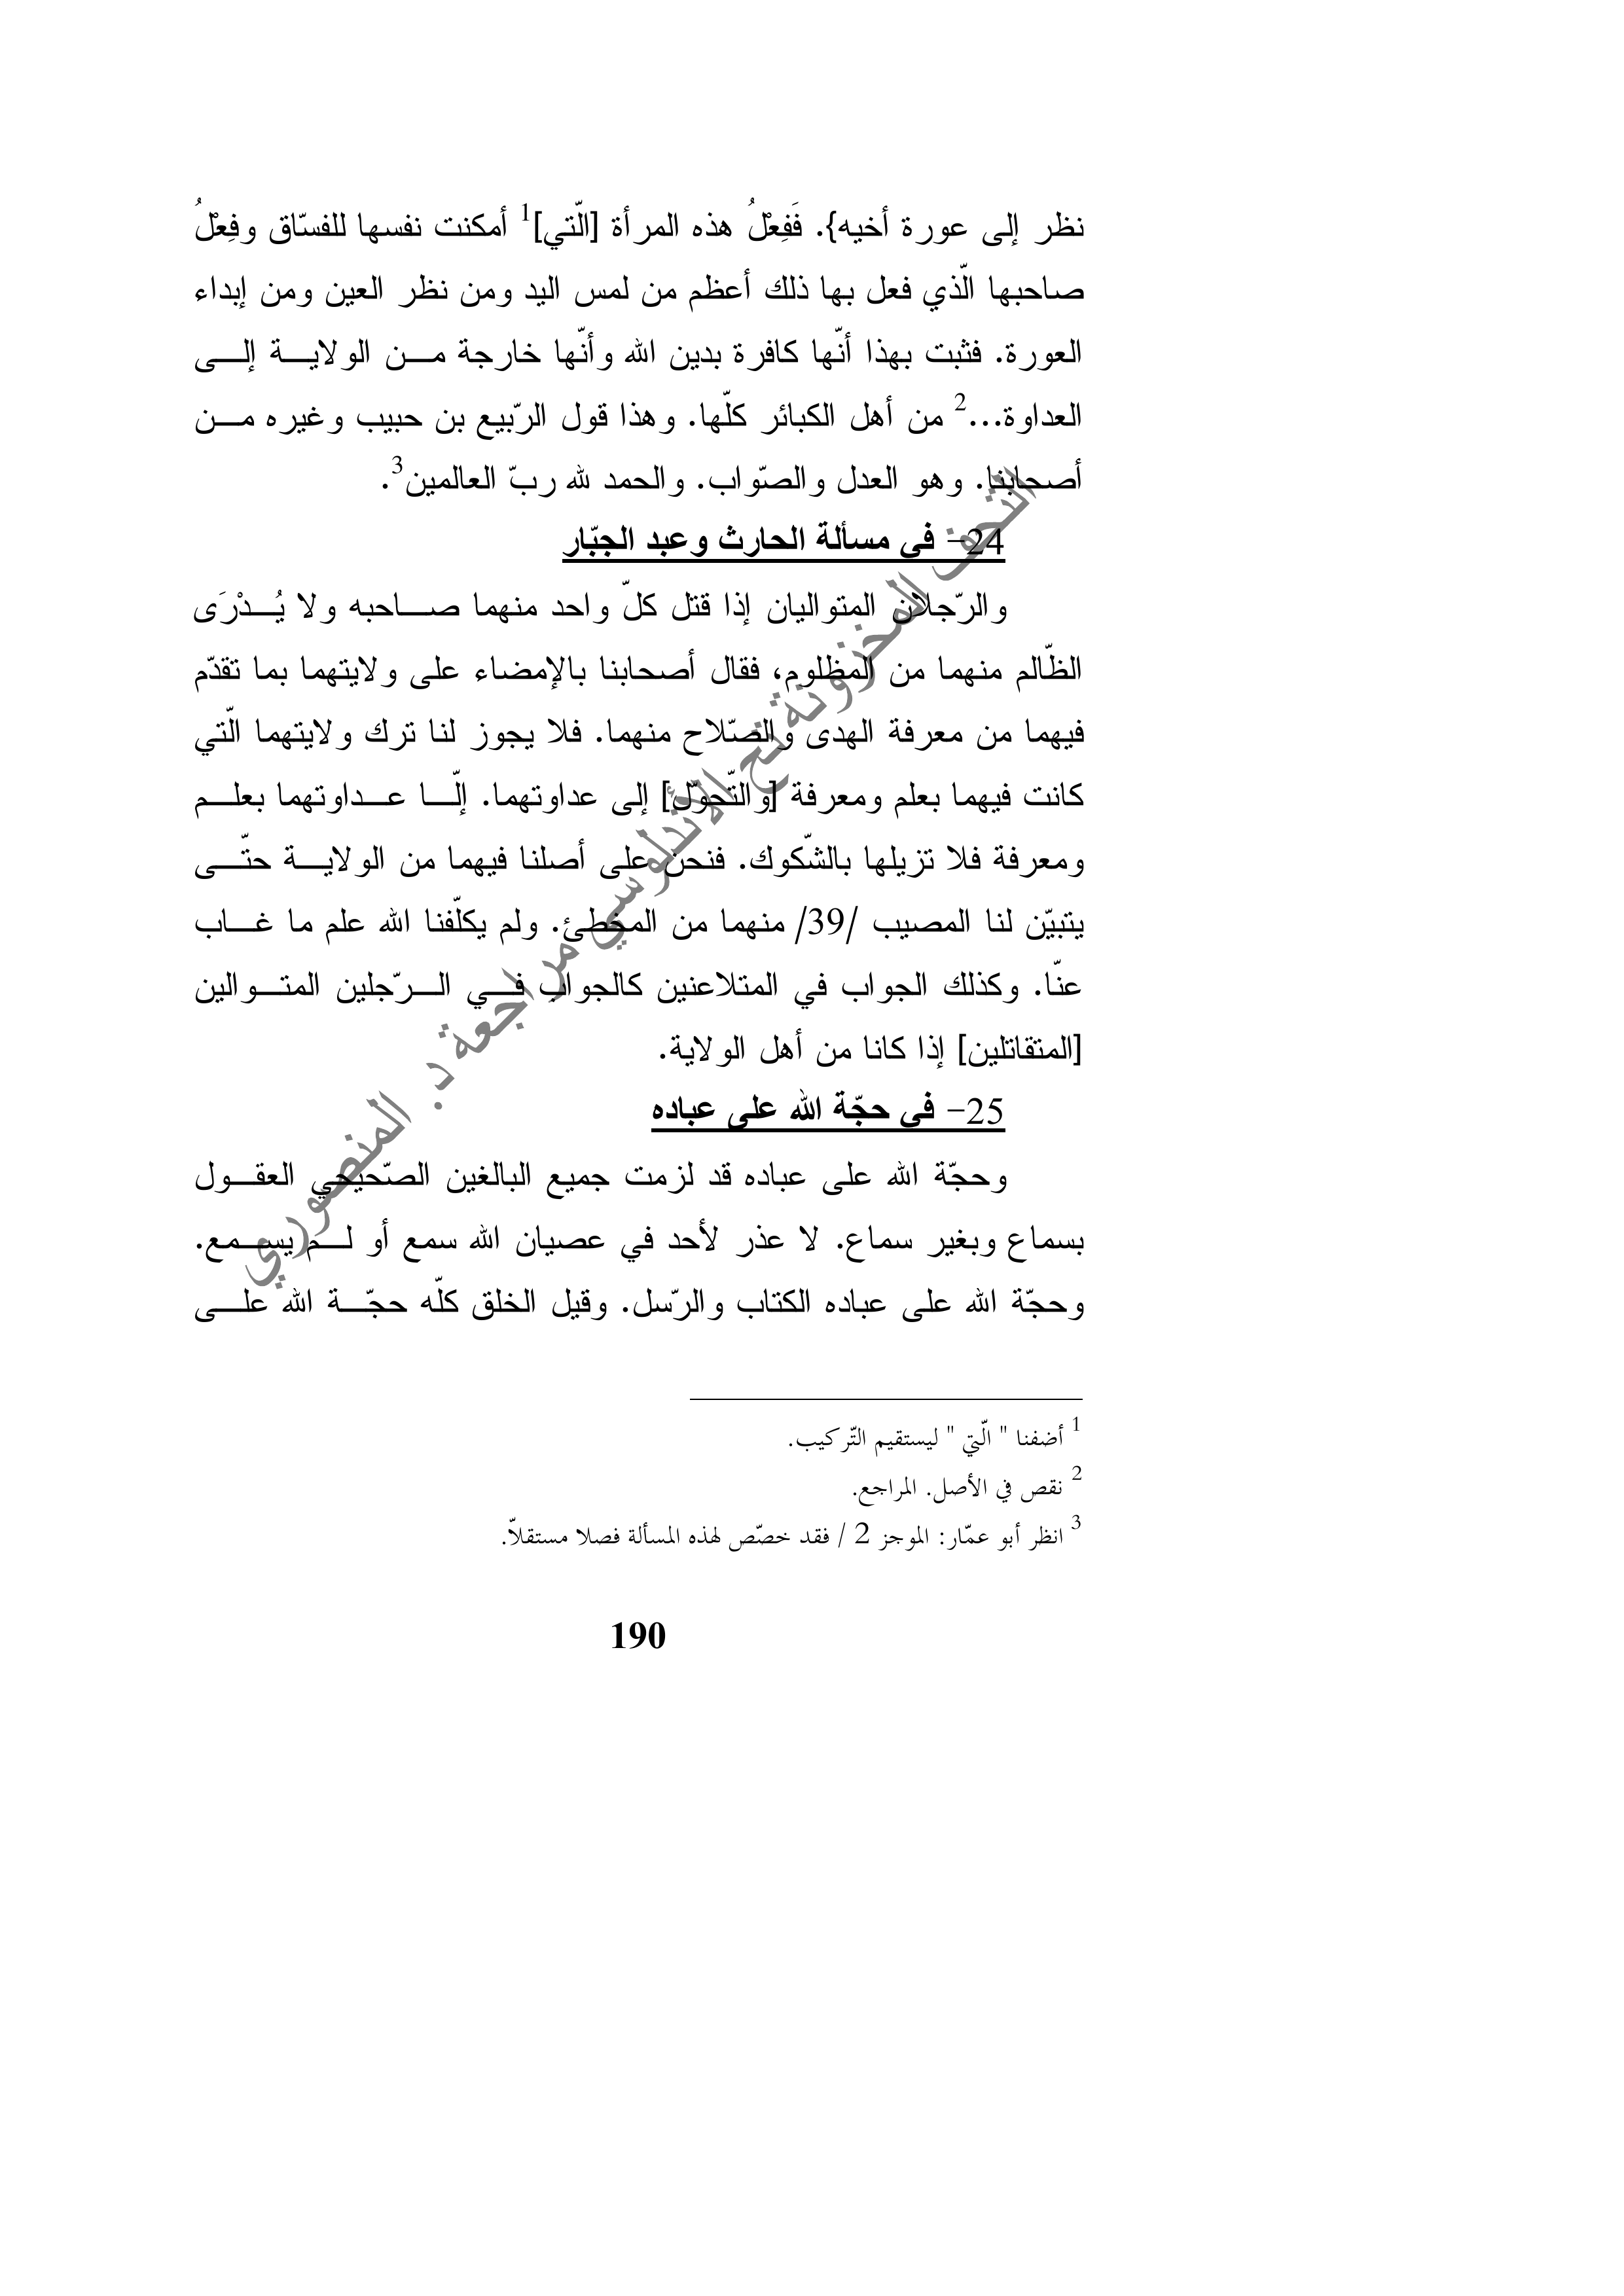 نظر إلى عورة أخيه}. فَفِعْلُ هذه المرأة [الّتي]1 أمكنت نفسها للفسّاق وفِعْلُ
صاحبها الّذي فعل بها ذلك أعظم من لمس اليد ومن نظر العين ومن إبداء
العورة. فثبت بهذا أنّها كافرة بدين الله وأنّها خارجة من الولاية إلى
العداوة...2 من أهل الكبائر كلّها. وهذا قول الرّبيع بن حبيب وغيره من
أصحابنا. وهو العدل والصّواب. والحمد لله ربّ العالمين3.
24- في مسألة الحارث وعبد الجبّار
والرّجلان المتواليان إذا قتل كلّ واحد منهما صاحبه ولا يُدْرَى
الظّالم منهما من المظلوم، فقال أصحابنا بالإمضاء على ولايتهما بما تقدّم
فيهما من معرفة الهدى والصّلاح منهما. فلا يجوز لنا ترك ولايتهما الّتي
كانت فيهما بعلم ومعرفة [والتّحوّل] إلى عداوتهما. إلّا عداوتهما بعلم
ومعرفة فلا تزيلها بالشّكوك. فنحن على أصلنا فيهما من الولاية حتّى
يتبيّن لنا المصيب /39/ منهما من المخطئ. ولم يكلّفنا الله علم ما غاب
عنّا. وكذلك الجواب في المتلاعنين كالجواب في الرّجلين المتوالين
[المتقاتلين] إذا كانا من أهل الولاية.
25- في حجّة الله على عباده
وحجّة الله على عباده قد لزمت جميع البالغين الصّحيحي العقول
بسماع وبغير سماع. لا عذر لأحد في عصيان الله سمع أو لم يسمع.
وحجّة الله على عباده الكتاب والرّسل. وقيل الخلق كلّه حجّة الله على
1 أضفنا " الّتي " ليستقيم التّركيب.
2 نقص في الأصل. المراجع.
3 انظر أبو عمّار: الموجز 2 / فقد خصّص لهذه المسألة فصلا مستقلاّ.
190
التحف المخزونة تح الأندلوسي مراجعة د. المنصوري